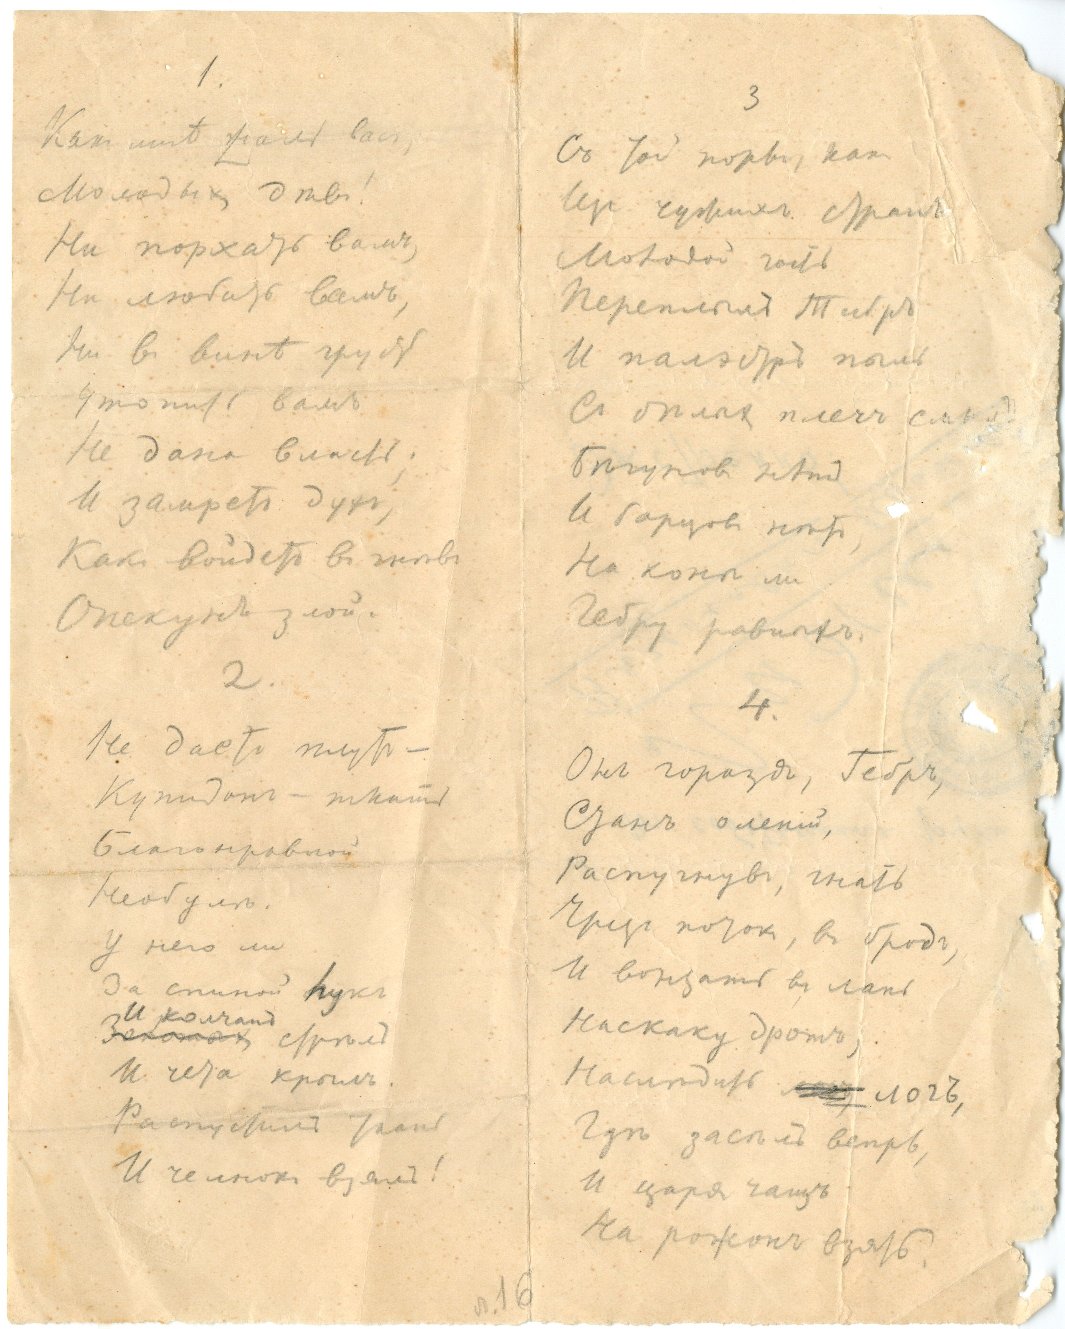 1.
Какъ мнѣ жаль васъ,
Молодыхъ дѣвъ!
Ни порхать вамъ,
Ни любить вамъ,
Ни въ винѣ грусть
Утопить вамъ
Не дана власть;
И замретъ духъ,
Какъ войдетъ въ гнѣвѣ
Опекунъ злой.
2.
Не даетъ плутъ —
Купидонъ — ткать
Благонравной
Необулѣ.
У него ли
За спиной лукъ
И колчанъ
стрѣлъ
И чета крылъ.
Распустилъ ткань
И челнокъ взялъ!
3
Съ той поры, какъ
Изъ чужихъ странъ
Молодой гость
Переплылъ Тибръ
И палэстръ пыль
Съ бѣлыхъ плечъ смылъ
Бѣгуновъ нѣтъ
И борцовъ нѣтъ,
На конѣ ли
Гебру равныхъ.
4.
Онъ гораздъ, Гебръ,
Станъ оленій,
Распугнувъ, гнать
Чрезъ потокъ, въ бродъ,
И вонзать въ лань
Наскаку дротъ,
Наслѣдить логъ,
Гдѣ засѣлъ вепрь,
И царя чащъ
На рожонъ взять.
л. 16